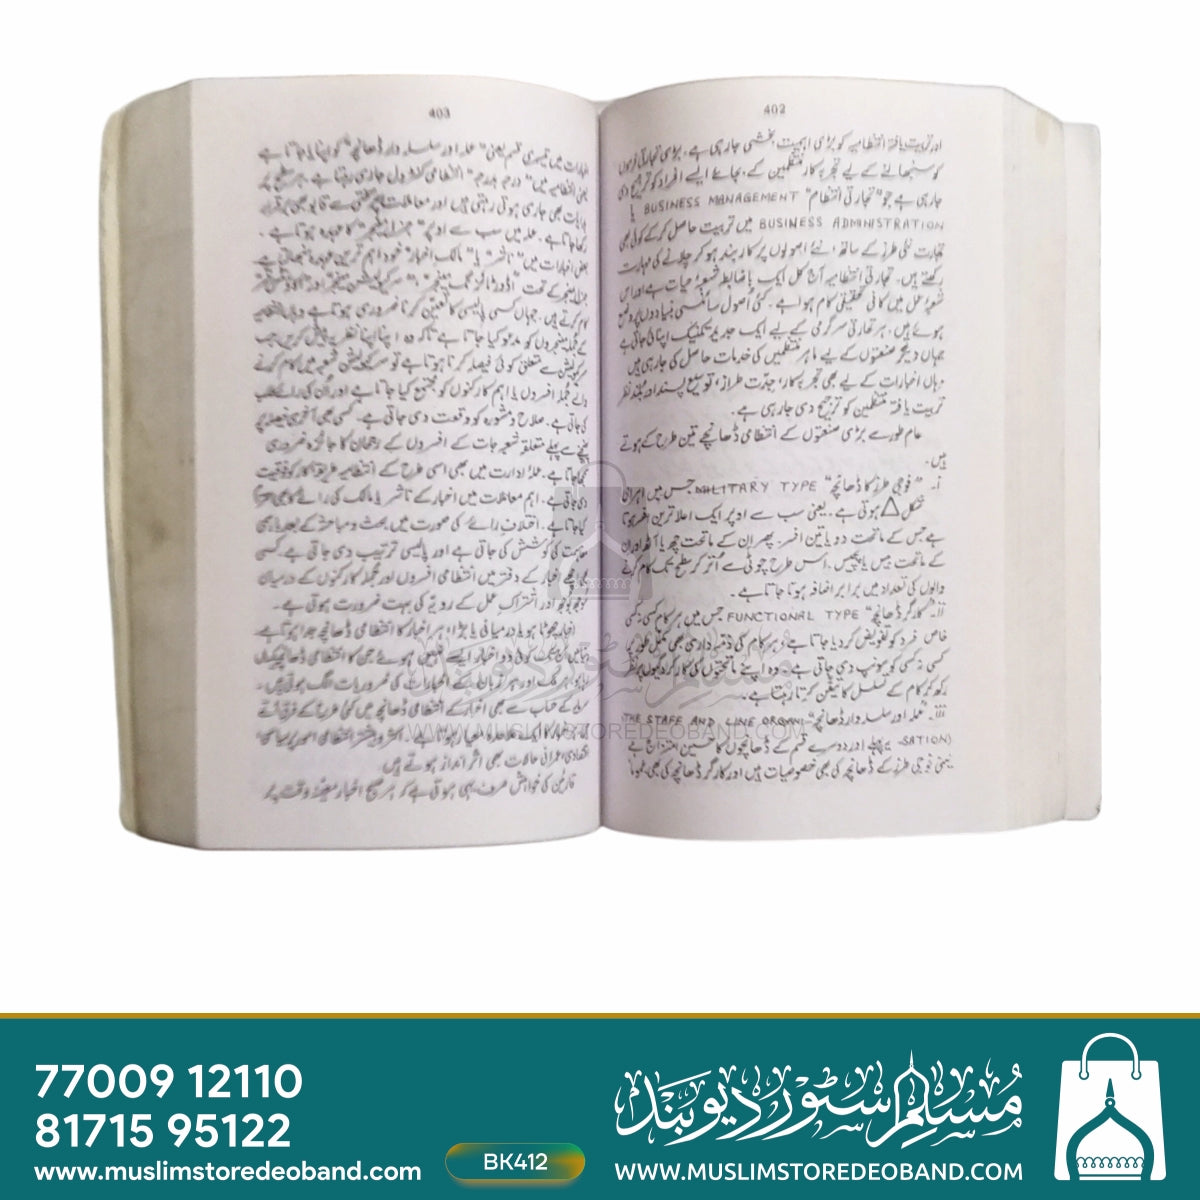 402
اور تربیت یافتہ انتظامیہ کو بڑی اہمیت بخشی جا رہی ہے۔ بڑی تجارتی فرموں
کو سنبھالنے کے لیے تجربہ کار منتظمین کے بجائے ایسے افراد کو ترجیح دی
جا رہی ہے جو "تجارتی انتظام" BUSINESS MANAGEMENT یا
BUSINESS ADMINISTRATION میں تربیت حاصل کر کے کوئی بھی
تجارت نئی طرز کے ساتھ، نئے اصولوں پر کاربند ہو کر چلانے کی مہارت
رکھتے ہیں۔ تجارتی انتظامیہ آج کل ایک باضابطہ شعبۂ حیات ہے اور اس
شعبۂ عمل میں کافی تحقیقی کام ہوا ہے۔ کئی اُصول سائنسی بنیادوں پر وضع
ہوئے ہیں۔ ہر تجارتی سرگرمی کے لیے ایک جدید تکنیک اپنائی جاتی ہے
جہاں دیگر صنعتوں کے لیے ماہر منتظمین کی خدمات حاصل کی جا رہی ہیں
وہاں اخبارات کے لیے بھی تجربہ کار، جدّت طراز، توسیع پسند اور بلند نظر
تربیت یافتہ منتظمین کو ترجیح دی جا رہی ہے۔
عام طور سے بڑی صنعتوں کے انتظامی ڈھانچے تین طرح کے ہوتے
ہیں۔
i۔ "فوجی طرز کا ڈھانچہ" MILITARY TYPE جس میں اہرامی
شکل △ ہوتی ہے۔ یعنی سب سے اوپر ایک اعلا ترین افسر ہوتا
ہے جس کے ماتحت دو یا تین افسر۔ پھر ان کے ماتحت چھ یا آٹھ اور ان
کے ماتحت بیس یا پچیس۔ اس طرح چوٹی سے اُتر کر سطح تک کام کرنے
والوں کی تعداد میں برابر اضافہ ہوتا جاتا ہے۔
ii۔ "کارگر ڈھانچہ" FUNCTIONAL TYPE جس میں ہر کام کسی نہ کسی
خاص فرد کو تفویض کر دیا جاتا ہے۔ ہر کام کی ذمّہ داری بھی مکمل طور پر
کسی نہ کسی کو سونپ دی جاتی ہے۔ وہ اپنے ماتحتوں کی کارکردگیوں پر نظر
رکھ کر کام کے تسلسل کا تیقن کرتا رہتا ہے۔
iii۔ "عملہ اور سلسلہ وار ڈھانچہ" THE STAFF AND LINE ORGANI-
SATION) پہلے اور دوسرے قسم کے ڈھانچوں کا حسین امتزاج ہے
یعنی فوجی طرز کے ڈھانچہ کی بھی خصوصیات ہیں اور کارگر ڈھانچہ کی بھی۔ عموماً
403
اخبارات میں تیسری قسم یعنی "عملہ اور سلسلہ وار ڈھانچہ" کو اپنایا جاتا ہے
یعنی انتظامیہ میں "درجہ بدرجہ" انتظامی کنٹرول جاری رہتا ہے۔ ہر سطح پر
ہدایات بھی جاری ہوتی رہتی ہیں اور معاملات پر سختی سے قابو بھی برقرار
رکھا جاتا ہے۔ عملہ میں سب سے اوپر "جنرل منیجر" کا عہدہ ہوتا ہے۔
بعض اخبارات میں "ناشر" یا "مالک اخبار" خود اہم ترین عہدہ سنبھالتا ہے
جنرل منیجر کے تحت "اڈورٹائزنگ منیجر"، "سرکولیشن منیجر" اور
کام کرتے ہیں۔ جہاں کسی پالیسی کا تعین کرنا ضروری ہوتا ہے وہاں
کے جملہ منیجروں کو مدعو کیا جاتا ہے تاکہ وہ اپنا اپنا نظریہ پیش کریں جب
سرکولیشن سے متعلق کوئی فیصلہ کرنا ہوتا ہے تو سرکولیشن شعبہ میں کام کرنے
والے جملہ افسروں یا اہم کارکنوں کو مجتمع کیا جاتا ہے اور اُن کی رائے طلب
کی جاتی ہے۔ صلاح و مشورہ کو وقعت دی جاتی ہے۔ کسی بھی آخری فیصلہ پر
پہنچنے سے پہلے متعلقہ شعبہ جات کے افسروں کے رجحان کا جائزہ ضروری
سمجھا جاتا ہے۔ عملۂ ادارت میں بھی اسی طرح کے انتظامیہ طریقۂ کار کو فوقیت
دی جاتی ہے۔ اہم معاملات میں اخبار کے ناشر یا مالک کی رائے کو بھی
کیا جاتا ہے۔ اختلافِ رائے کی صورت میں بحث و مباحثہ کے بعد باہمی
مفاہمت کی کوشش کی جاتی ہے اور پالیسی ترتیب دی جاتی ہے۔ کسی
اخبار کے دفتر میں انتظامی افسروں اور جملہ کارکنوں کے درمیان
سوجھ بوجھ اور اشتراکِ عمل کے رویّہ کی بہت ضرورت ہوتی ہے۔
اخبار چھوٹا ہو یا درمیانی یا بڑا، ہر اخبار کا انتظامی ڈھانچہ جدا ہوتا ہے۔
کوئی دو اخبار ایسے نہیں ہوئے جن کا انتظامی ڈھانچہ یکساں
ہو۔ ہر ملک اور ہر زبان کے اخبارات کی ضروریات الگ ہوتی ہیں۔
کے حساب سے بھی اخبار کے انتظامی ڈھانچہ میں کئی طرح کے فرق آتے
معیار ہوتا ہے۔ انتظامی امور پر سیاسی،
اقتصادی، عمرانی حالات بھی اثر انداز ہوتے ہیں
قارئین کی خواہش صرف یہی ہوتی ہے کہ ہر صبح اخبار معینہ وقت پر
مسلم سٹور دیوبند
WWW.MUSLIMSTOREDEOBAND.COM
77009 12110
81715 95122
www.muslimstoredeoband.com
BK412
مسلم سٹور دیوبند
WWW.MUSLIMSTOREDEOBAND.COM